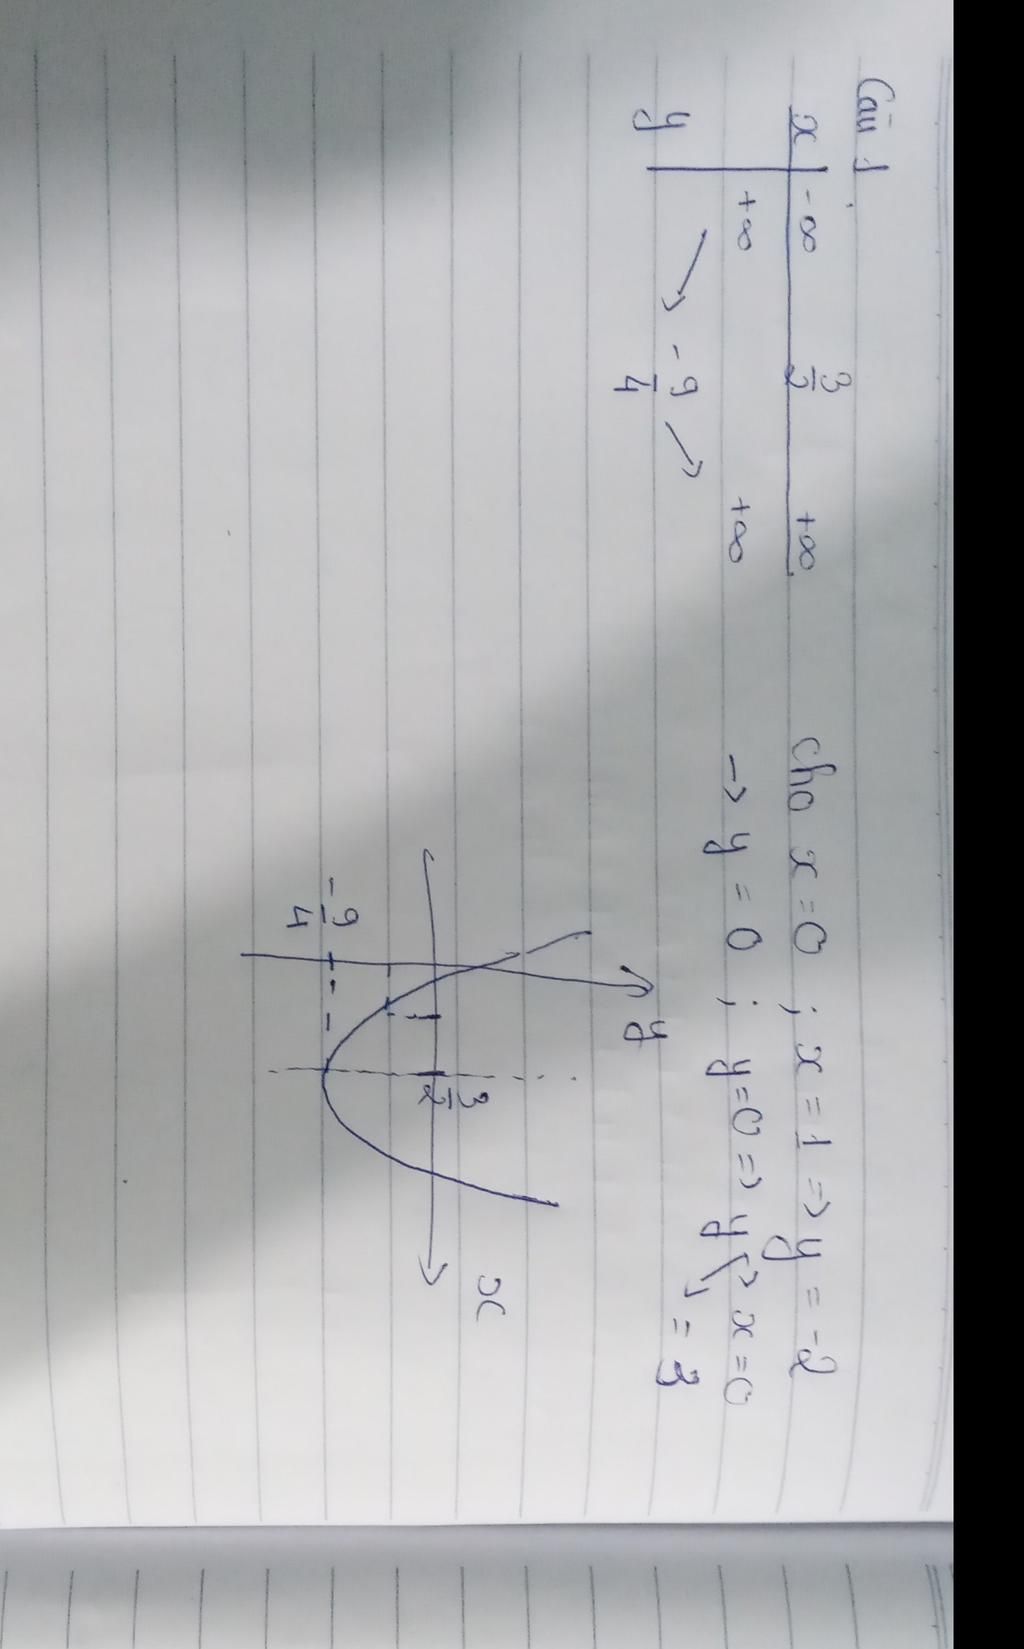 Câu 1
x -∞ 3/2 +∞
y +∞ -9/4 +∞
cho x = 0 ; x = 1 => y = -2
-> y = 0 ; y = 0 => y -> x = 0
= 3
y
x
3/2
-9/4